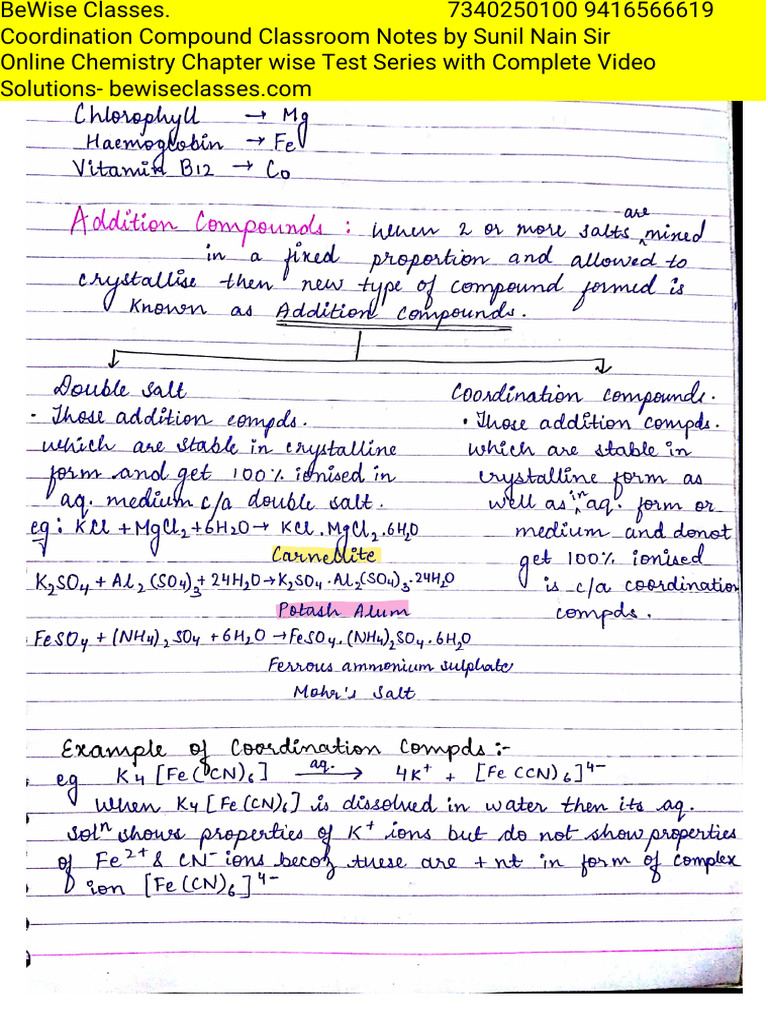 BeWise Classes. 7340250100 9416566619
Coordination Compound Classroom Notes by Sunil Nain Sir
Online Chemistry Chapter wise Test Series with Complete Video
Solutions- bewiseclasses.com
Chlorophyll → Mg
Haemoglobin → Fe
Vitamin B12 → Co
Addition Compounds : When 2 or more salts are mixed
in a fixed proportion and allowed to
crystallise then new type of compound formed is
known as Addition Compounds.
Double Salt
· Those addition compds.
which are stable in crystalline
form and get 100% ionised in
aq. medium c/a double salt.
eg: KCl + MgCl2 + 6H2O → KCl.MgCl2.6H2O
Carnellite
K2SO4 + Al2(SO4)3 + 24H2O → K2SO4.Al2(SO4)3.24H2O
Potash Alum
FeSO4 + (NH4)2SO4 + 6H2O → FeSO4.(NH4)2SO4.6H2O
Ferrous ammonium sulphate
Mohr's Salt
Coordination compounds.
· Those addition compds.
which are stable in
crystalline form as
well as in aq. form or
medium and donot
get 100% ionised
is c/a coordination
compds.
Example of Coordination Compds :-
eg K4[Fe(CN)6] aq. → 4K+ + [Fe(CN)6]4-
When K4[Fe(CN)6] is dissolved in water then its aq.
soln shows properties of K+ ions but do not show properties
of Fe2+ & CN- ions becoz these are +nt in form of complex
ion [Fe(CN)6]4-